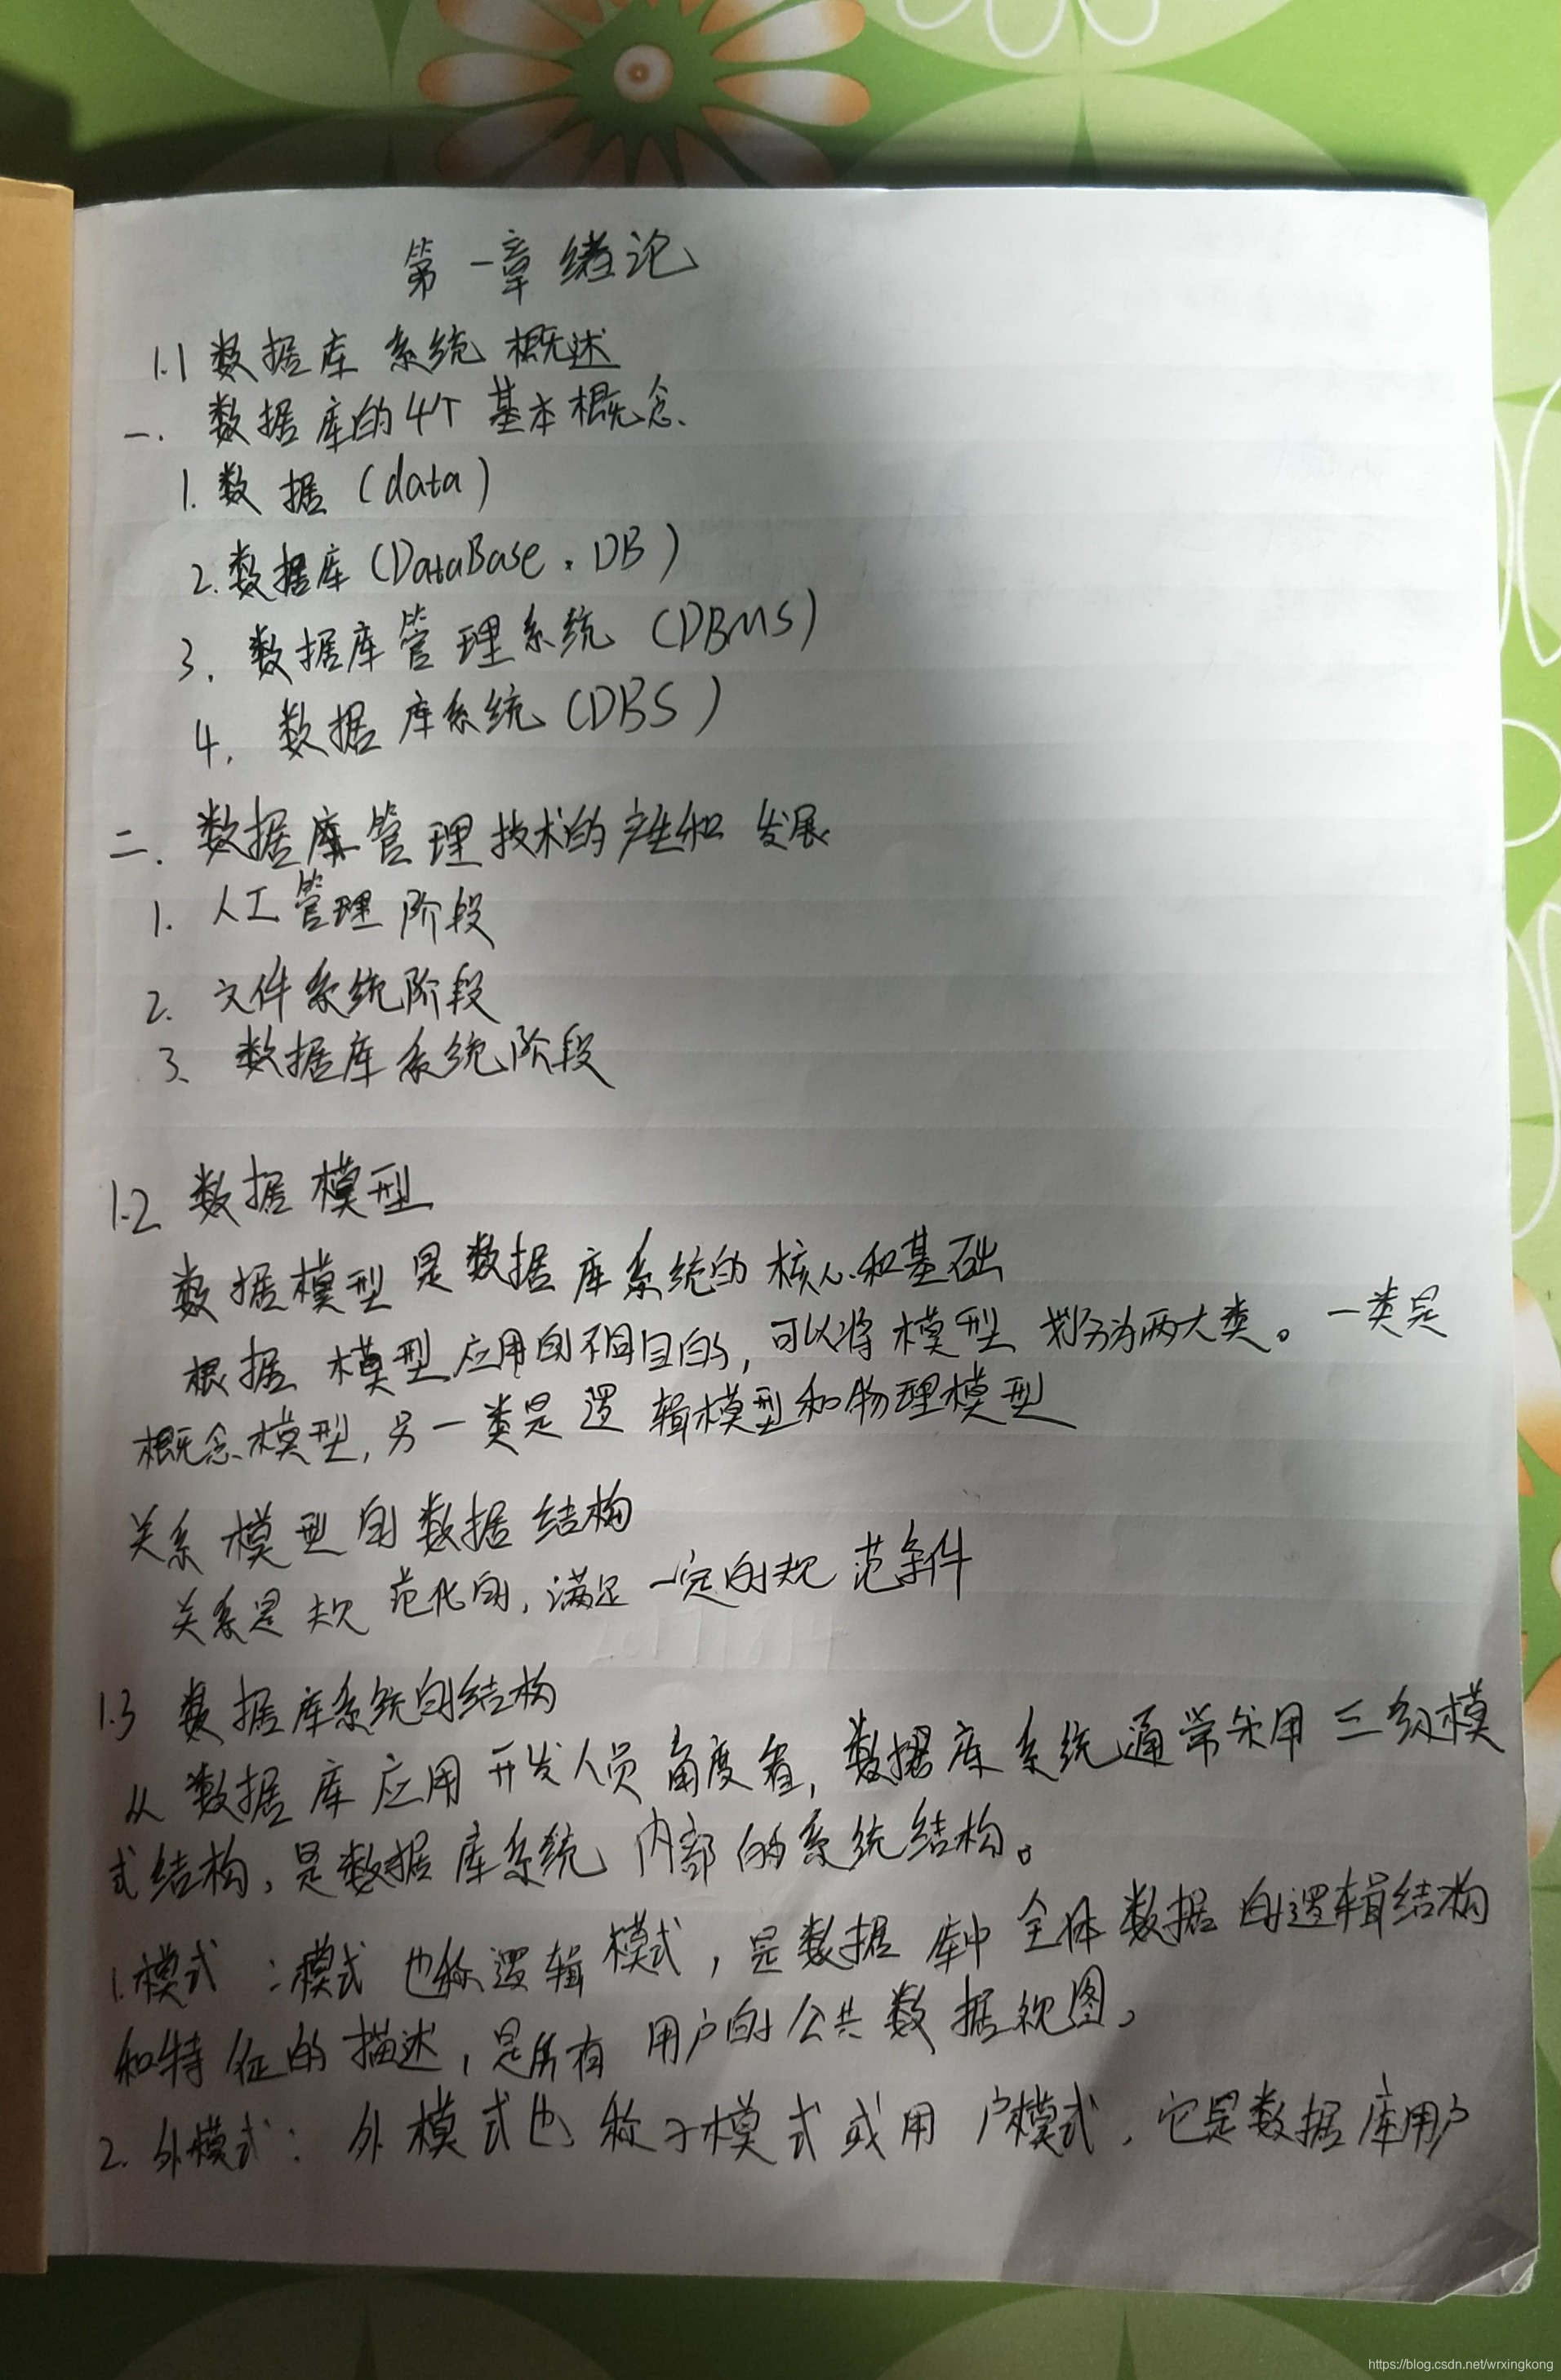 第一章绪论
1.1 数据库系统概述
一. 数据库的4个基本概念
1. 数据 (data)
2. 数据库 (DataBase. DB)
3. 数据库管理系统 (DBMS)
4. 数据库系统 (DBS)
二. 数据库管理技术的产生和发展
1. 人工管理阶段
2. 文件系统阶段
3、数据库系统阶段
1.2 数据模型
数据模型是数据库系统的核心和基础
根据模型应用的不同目的,可以将模型划分为两大类。一类是
概念模型,另一类是逻辑模型和物理模型
关系模型的数据结构
关系是规范化的,满足一定的规范条件
1.3 数据库系统的结构
从数据库应用开发人员角度看,数据库系统通常采用三级模
式结构,是数据库系统内部的系统结构。
1.模式:模式也称逻辑模式,是数据库中全体数据的逻辑结构
和特征的描述,是所有用户的公共数据视图。
2. 外模式:外模式也称子模式或用户模式,它是数据库用户
https://blog.csdn.net/wrxingkong